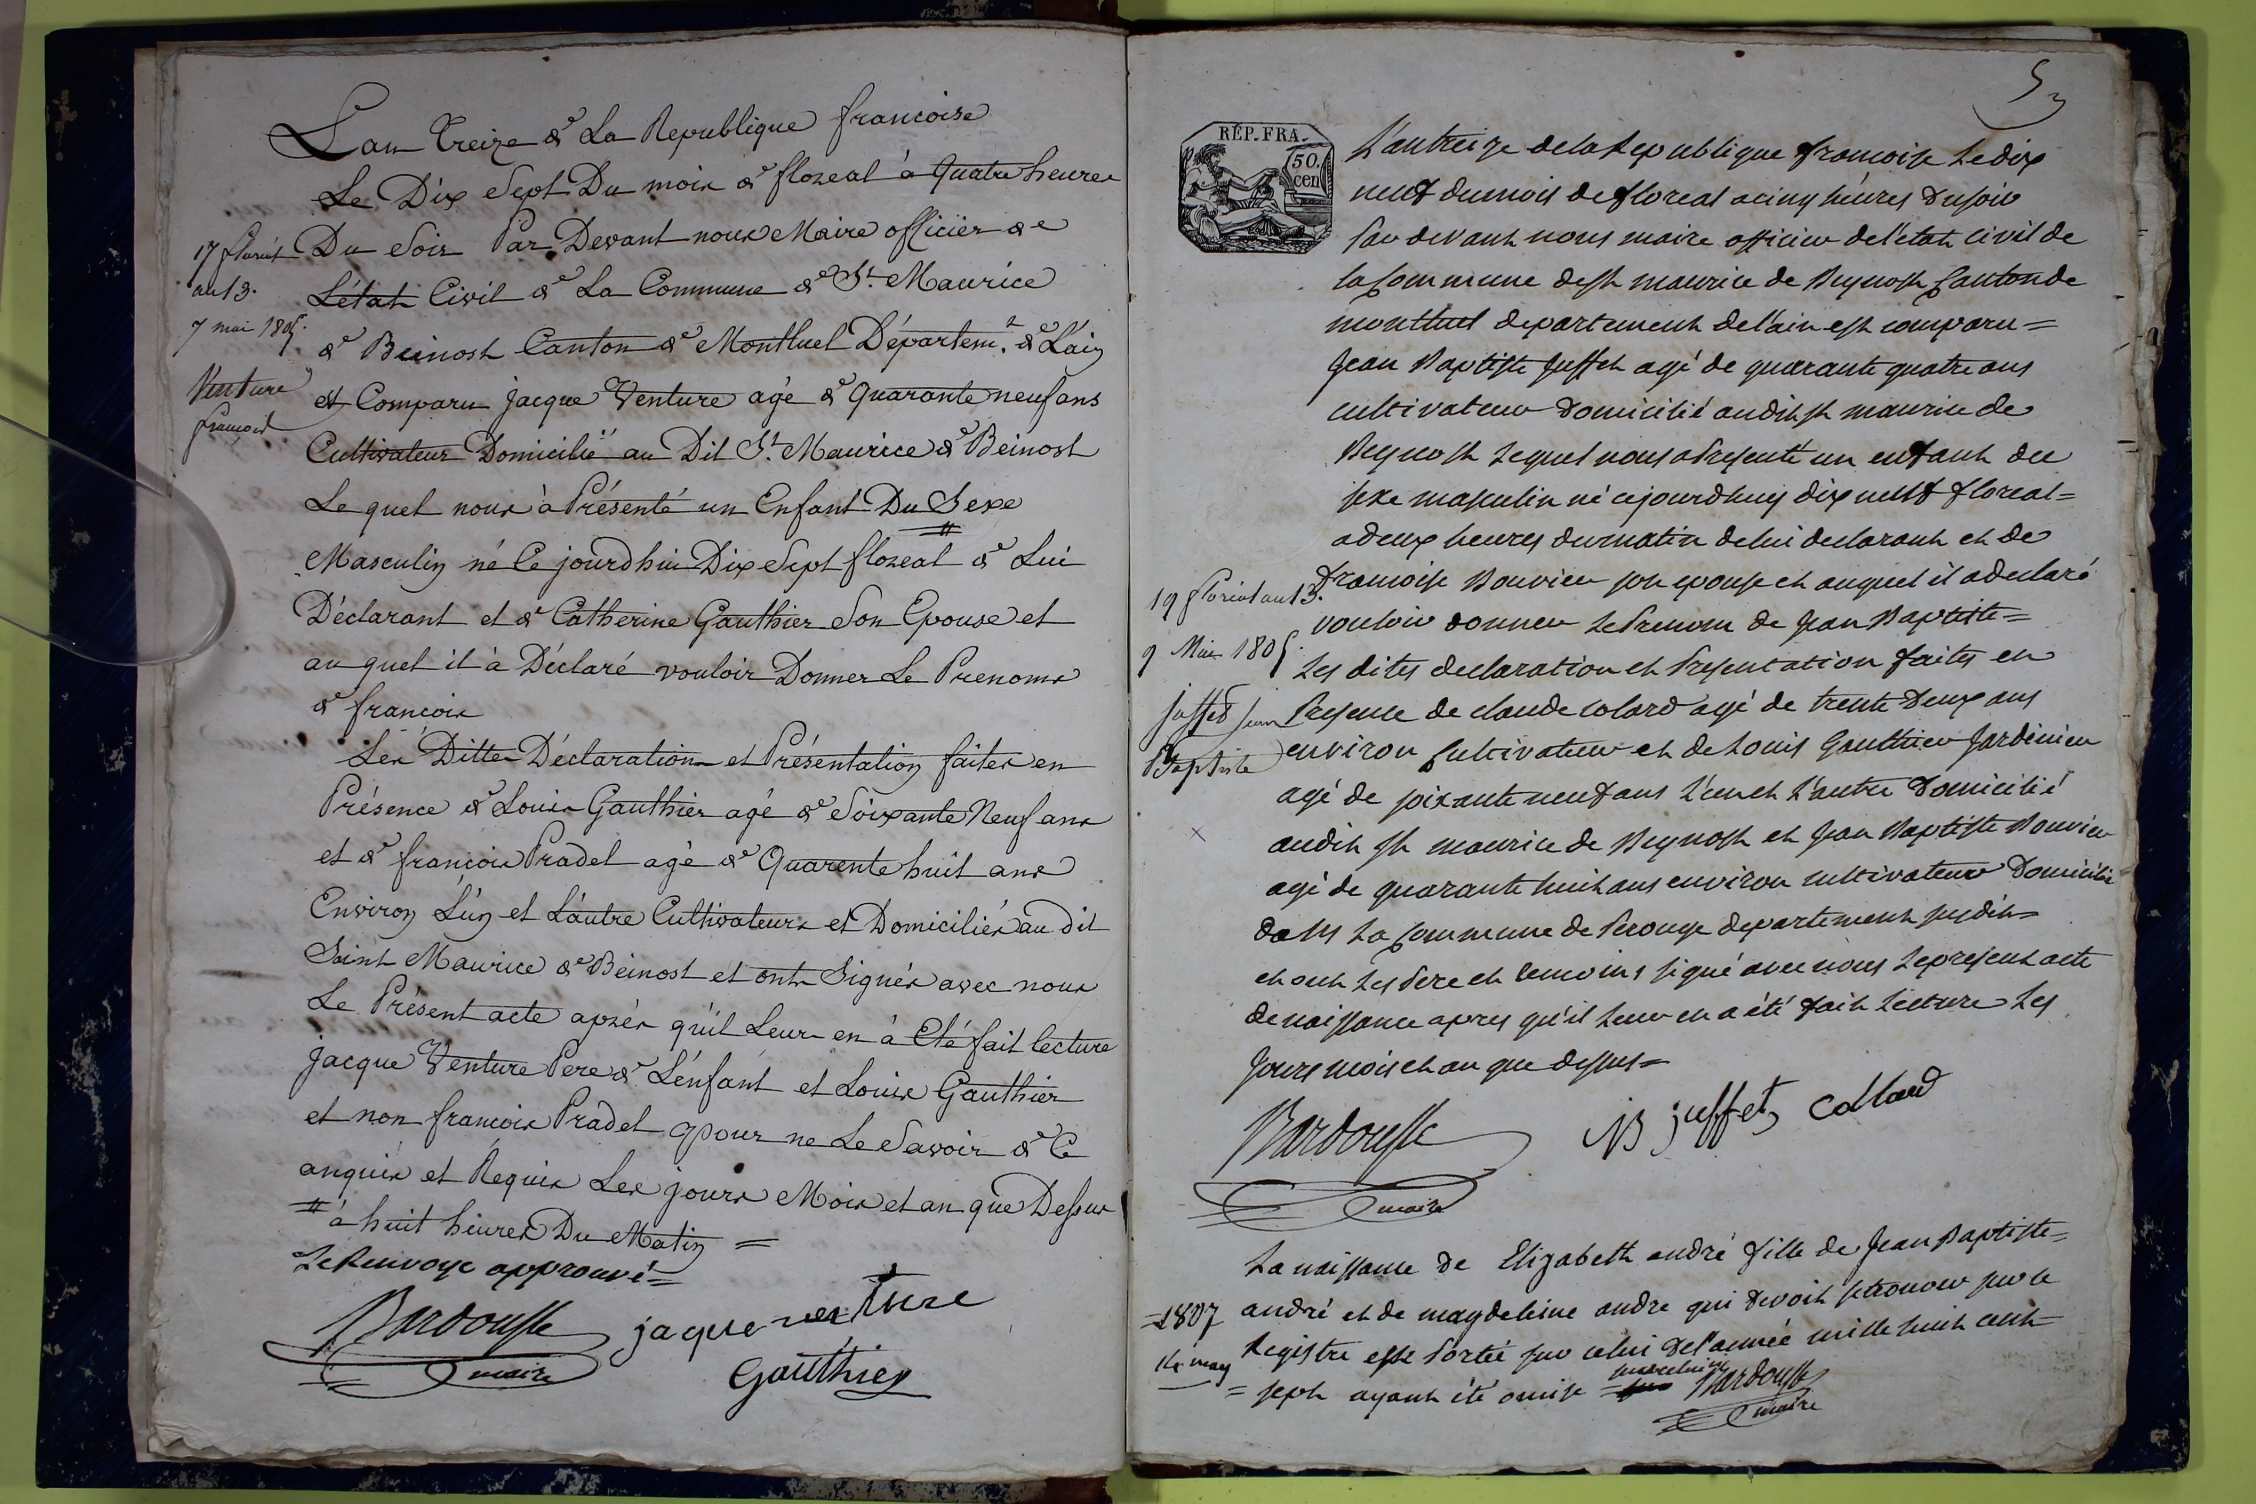 Lan treize de La Republique francoise
Le Dix Sept Du mois de floreal à Quatre heures
Du Soir Par Devant nous Maire officiër de
L'état Civil de La Commune de St. Maurice
de Beinost Canton de Montluel Départemt. de L'ain
est Comparu jacque Venture agé de Quarante neuf ans
Cultivateur Domicilié au Dit St. Maurice de Beinost
Le quel nous à Présenté un Enfant Du Sexe
Masculin né Ce jourd'hui Dix Sept floreal de Lui
Déclarant et de Catherine Gauthier Son Epouse et
au quel il à Déclaré vouloir Donner Le Prenoms
de francois
Les Dittes Déclaration et Présentation faites en
Présence de Louis Gauthier agé de Soixante Neuf ans
et de francois Pradel agé de Quarente huit ans
Environ L'un et L'autre Cultivateurs et Domiciliés au dit
Saint Maurice de Beinost et ont Signés avec nous
Le Présent acte aprés qu'il Leur en à Eté fait lecture
jacque Venture Pere de L'enfant et Louis Gauthier
et non francois Pradel pour ne Le Savoir de Ce
anquis et Requis Les jours Mois et an que Dessus
" à huit heures Du Matin =
Le Renvoye approuvé =
Bardousse
maire
jaque venture
Gauthier
17 floréal
an 13.
7 mai 1805.
Venture
françois
5
RÉP. FRA.
50.
cen
L'an treize de la Republique francoise Le dix
neuf du mois de floreal a cinq heures du soir
Par devant nous maire officier de l'état civil de
la Commune de st maurice de Beynost Canton de
montluel departement de l'ain est comparu =
Jean Baptiste Juffet agé de quarante quatre ans
cultivateur domicilié audit st maurice de
Beynost Lequel nous a Presenté un enfant du
sexe masculin né cejourdhuy dix neuf floreal =
a deux heures du matin de lui declarant et de
francoise Bouvier son epouse et auquel il a declaré
vouloir donner Le Prenom de Jean Baptiste =
Les dites declaration et Presentation faites en
Presence de claude Colard agé de trente deux ans
environ Cultivateur et de Louis Gauthier Jardinier
agé de soixante neuf ans L'un et L'autre domicilié
audit st maurice de Beynost et Jean Baptiste Bouvier
agé de quarante huit ans environ cultivateur domicilié
dans La Commune de Perouge departement susdit =
et ont Les Pere et temoins signé avec nous Le present acte
de naissance apres qu'il Leur en a été fait Lecture Les
Jours mois et an que dessus =
Bardousse
maire
JB juffet collard
19 floréal an 13.
9 Mai 1805.
juffet jean
Baptiste
La naissance de Elizabeth andré fille de Jean Baptiste =
andré et de magdeleine andre qui devoit se trouver sur ce
Registre est Portée sur celui de l'année mille huit cent =
= sept ayant été omise
sur celui ci
Bardousse
maire
= 1807
14 may